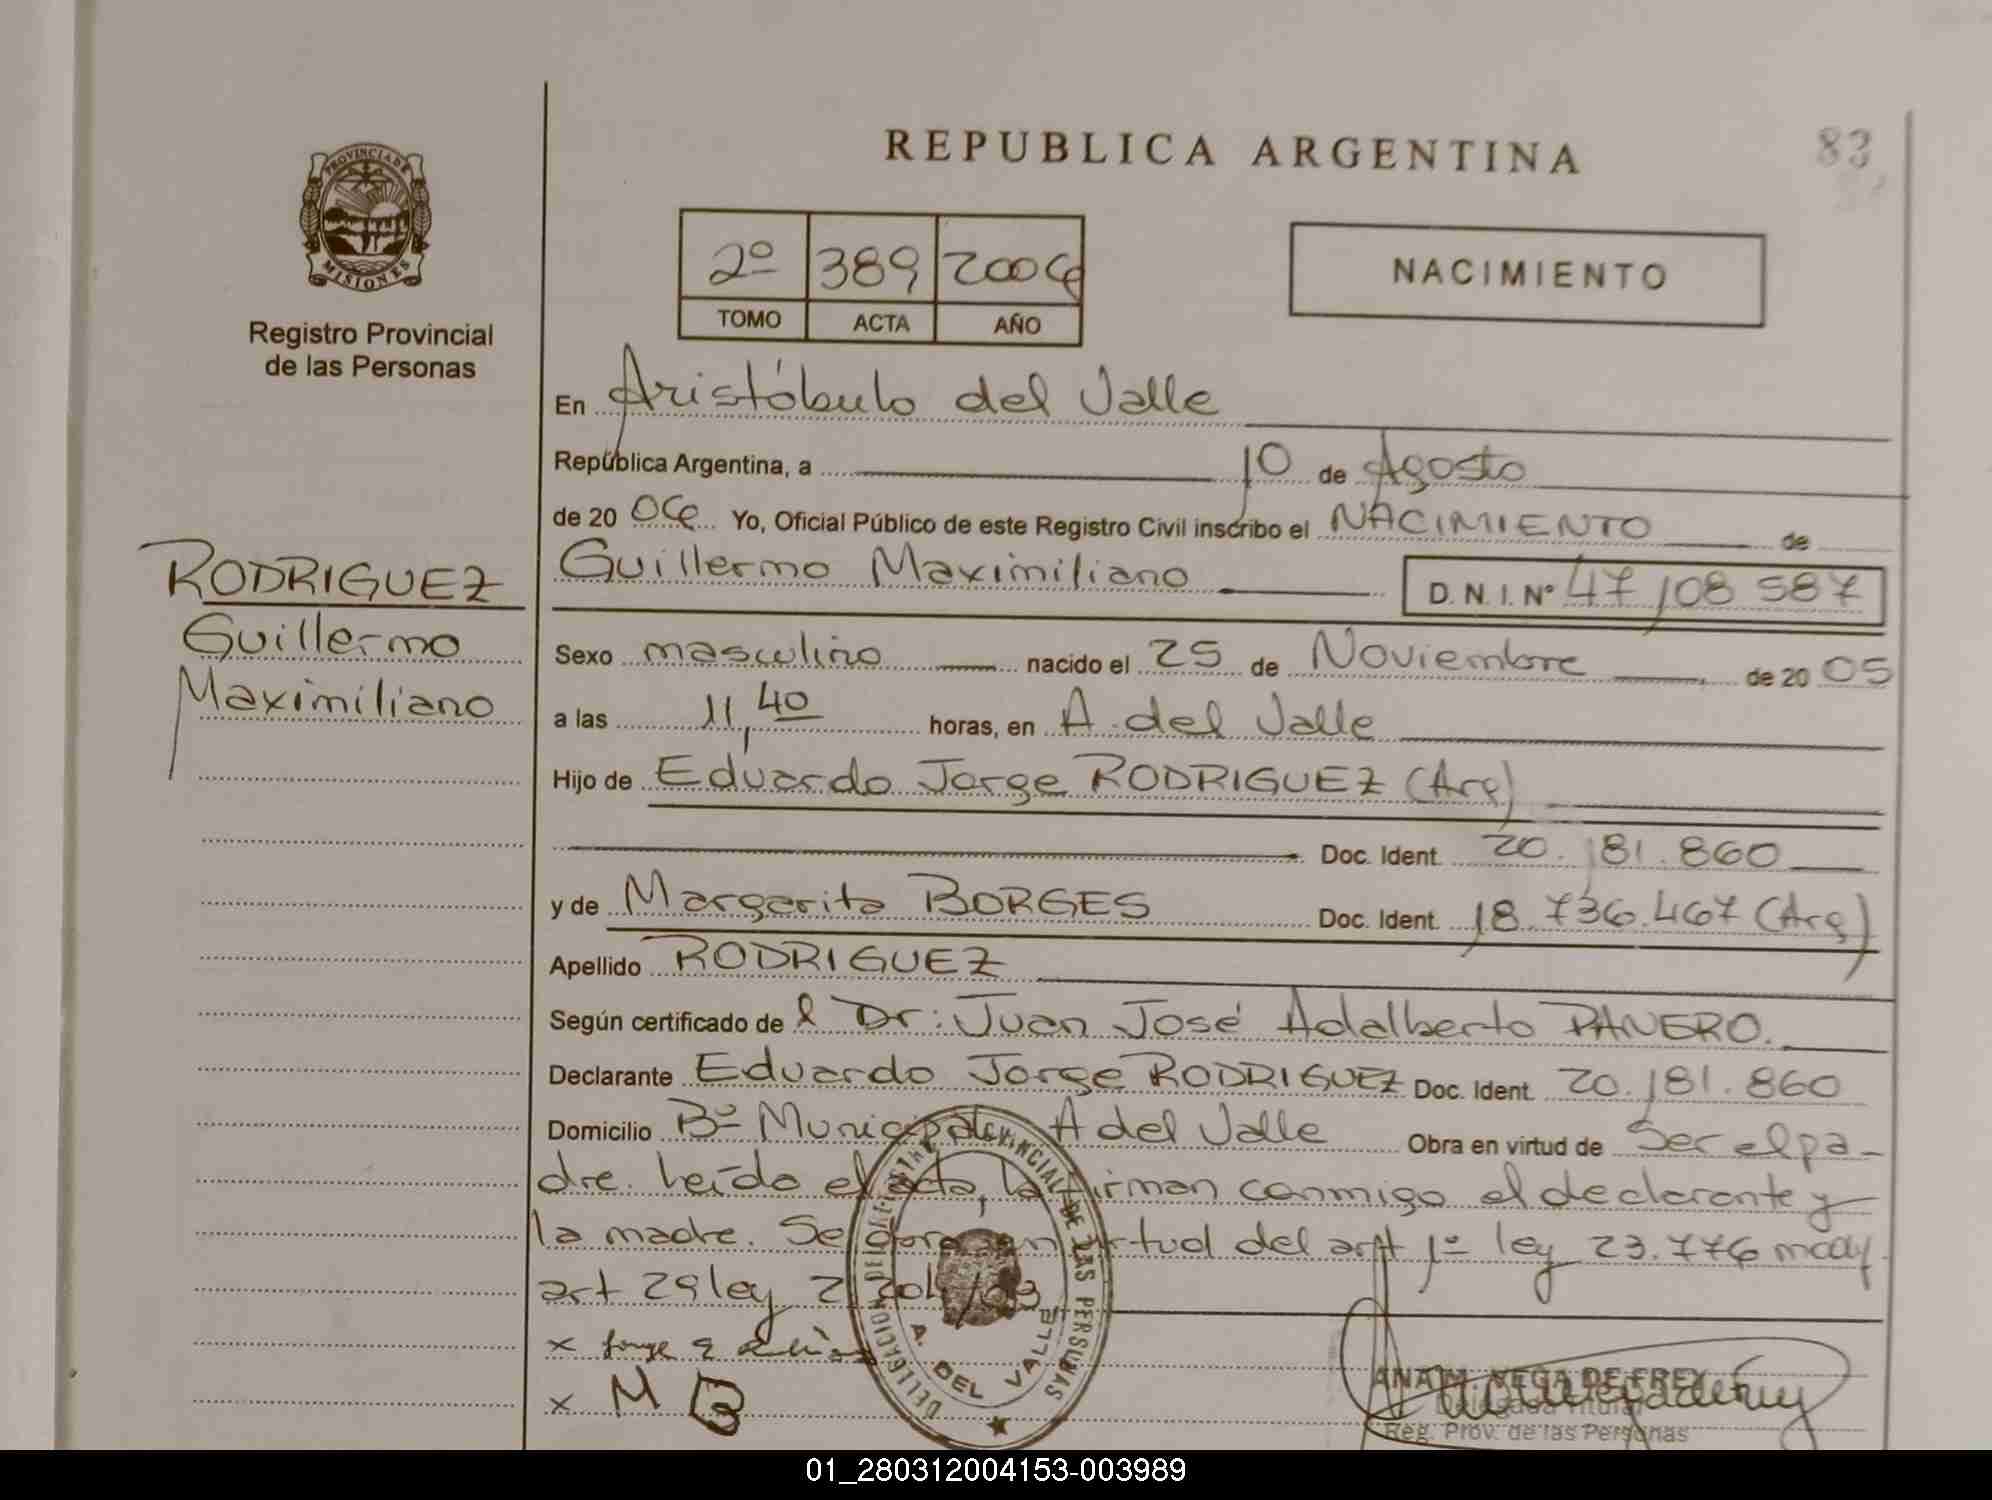 REPUBLICA ARGENTINA
83
PROVINCIA DE
MISIONES
Registro Provincial
de las Personas
2º 389 2006
TOMO ACTA AÑO
NACIMIENTO
En Aristóbulo del Valle
República Argentina, a 10 de Agosto
de 20 06 Yo, Oficial Público de este Registro Civil inscribo el NACIMIENTO de
Guillermo Maximiliano D. N. I. Nº 47 108 587
RODRIGUEZ
Guillermo
Maximiliano
Sexo masculino nacido el 25 de Noviembre de 20 05
a las 11,40 horas, en A. del Valle
Hijo de Eduardo Jorge RODRIGUEZ (Arg)
Doc. Ident. 20.181.860
y de Margarita BORGES Doc. Ident. 18.736.467 (Arg)
Apellido RODRIGUEZ
Según certificado de l Dr: Juan José Adalberto PANERO.
Declarante Eduardo Jorge RODRIGUEZ Doc. Ident. 20.181.860
Domicilio Bº Municipal A del Valle Obra en virtud de Ser el pa-
dre. Leído el acta, la firman conmigo el declarante y
la madre. Se en virtud del art 1º ley 23.776 mody
art 29 ley
x
x M B
DELEGACION DEL REGISTRO PROVINCIAL DE LAS PERSONAS
A. DEL VALLE
ANA M. VEGA DE FREY
Delegada Titular
Reg. Prov. de las Personas
01_280312004153-003989